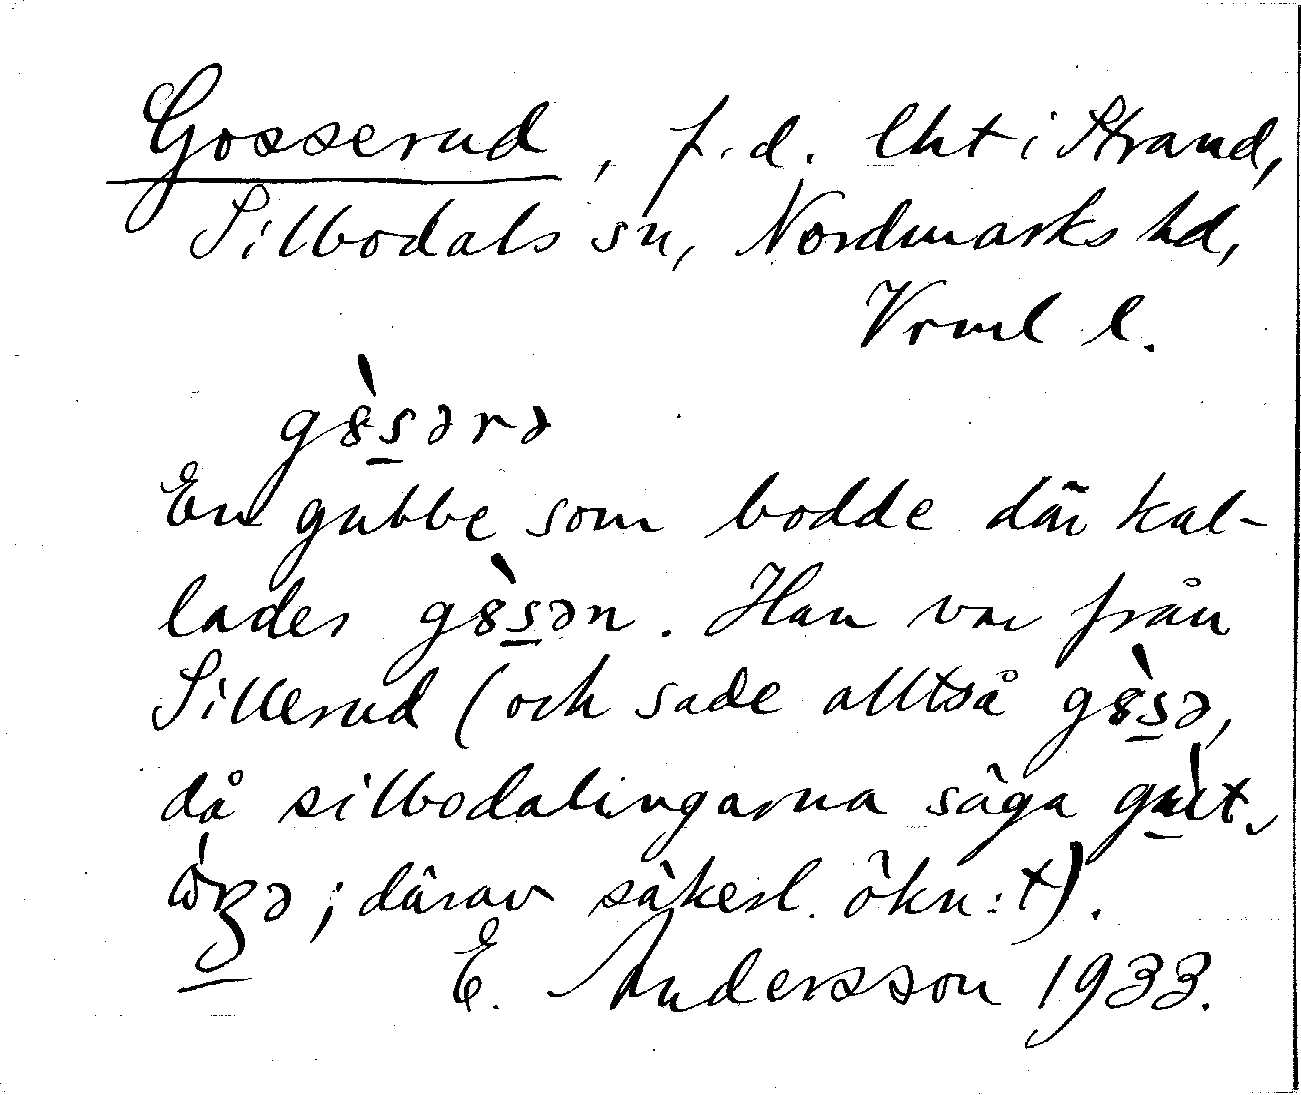 Gosserud, f.d. lht i Strand,
Silbodals sn, Nordmarks hd,
Vrml l.
gɞ̀s̱ərə
En gubbe som bodde där kal-
lades gɞ̀s̱ən. Han var från
Sillerud (och sade alltså gɞ̀s̱ə,
då silbodalingarna säga
; därav säkerl. ökn:t).
E. Andersson 1933.